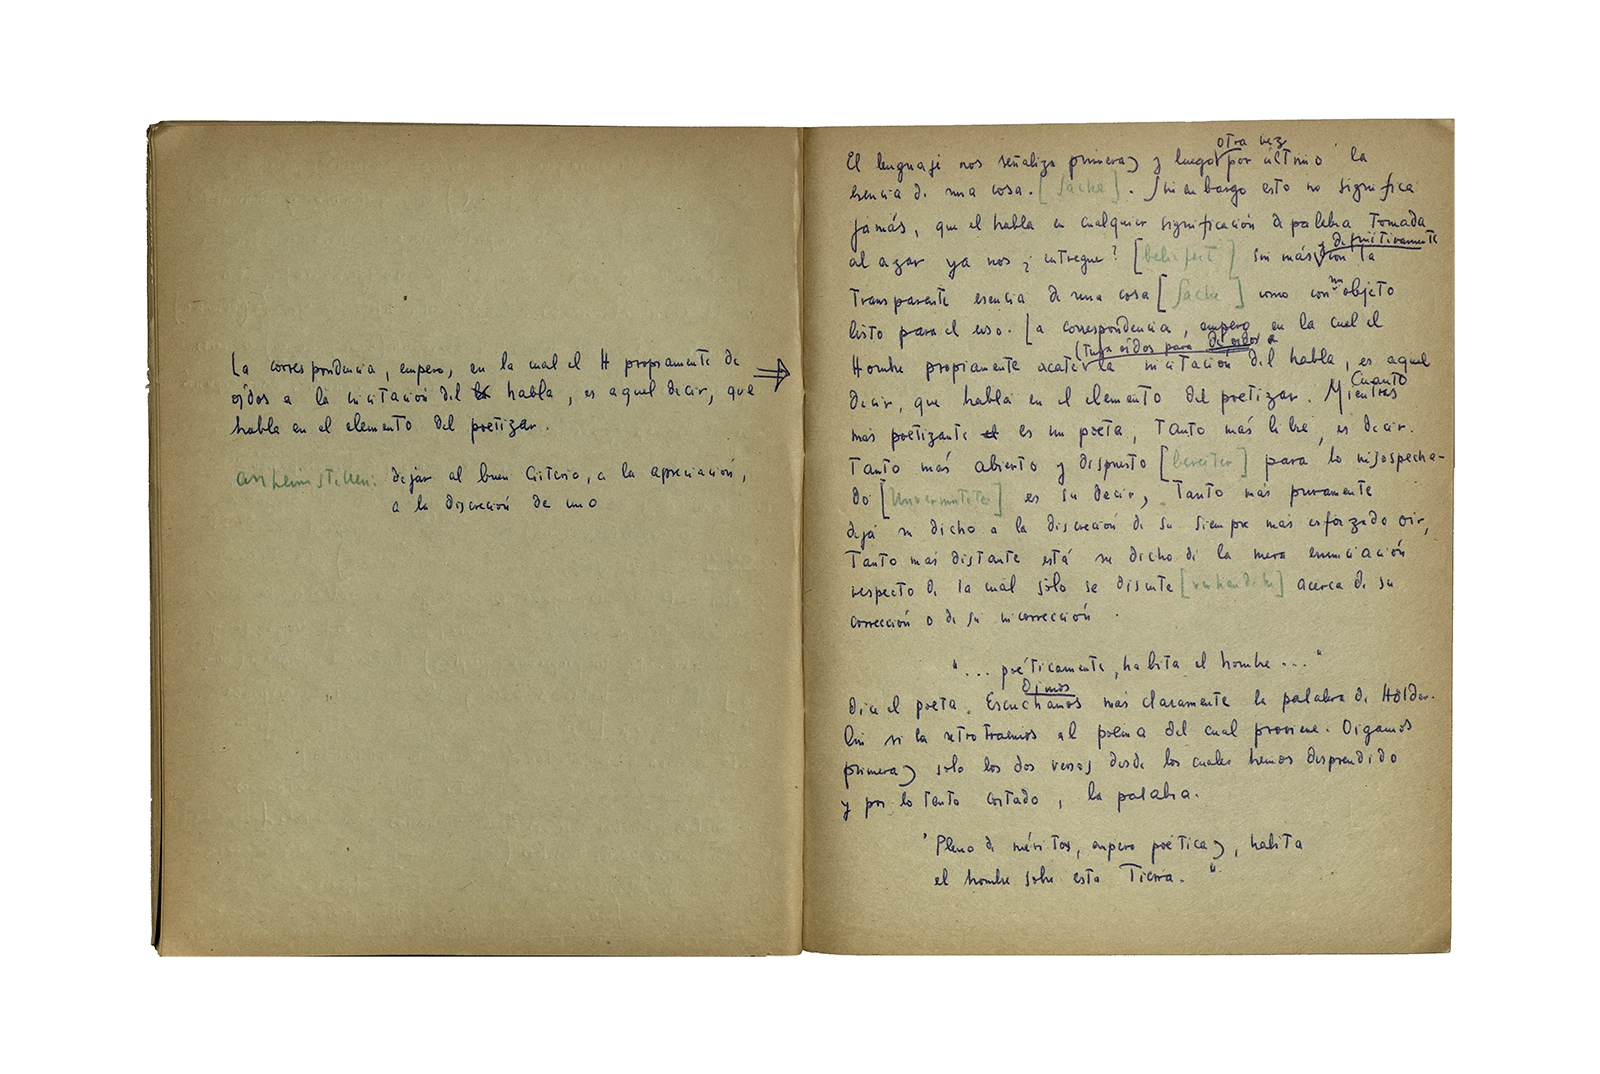 La correspondencia, empero, en la cual el H propiamente da
oídos a la incitación del habla, es aquel decir, que
habla en el elemento del poetizar.
anheimstellen: dejar al buen criterio, a la apreciación,
a la discreción de uno
otra vez
El lenguaje nos señaliza primera) y luego por último la
esencia de una cosa. [Sache]. Sin embargo esto no significa
jamás, que el habla en cualquier significación de palabra tomada
y definitivamente
al azar ya nos ¿ entregue? [beliefert] sin más con la
un
transparente esencia de una cosa [Sache] como con objeto
listo para el uso. La correspondencia, empero, en la cual el
(tuya oídos para de oídos a
Hombre propiamente acate la incitación del habla, es aquel
Cuanto
decir, que habla en el elemento del poetizar. Mientras
más poetizante es un poeta, tanto más libre, es decir.
tanto más abierto y dispuesto [bereiter] para lo insospecha-
do [Unvermutete] es su decir, tanto más puramente
deja su dicho a la discreción de su siempre más esforzado oir,
tanto más distante está su dicho de la mera enunciación
respecto de la cual sólo se discute [verhandelt] acerca de su
corrección o de su incorrección.
"... poéticamente, habita el hombre ..."
Oimos
dice el poeta. Escuchamos más claramente la palabra de Hölder-
lin si la retrotraemos al poema del cual proviene. Oigamos
primera) solo los dos versos desde los cuales hemos desprendido
y por lo tanto cortado, la palabra.
"Pleno de méritos, empero poética), habita
el hombre sobre esta Tierra."